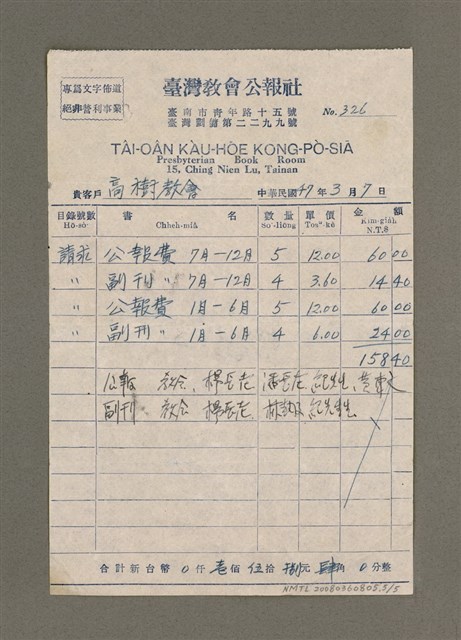 專爲文字佈道
絕非營利事業
臺灣教會公報社
臺南市青年路十五號
臺灣劃儲第二二九九號
No. 326
TÂI-OÂN KÀU-HŌE KONG-PÒ-SIĀ
Presbyterian Book Room
15, Ching Nien Lu, Tainan
貴客戶 高樹教會 中華民國47年3月7日
目錄號數 書名 數量 單價 金額
Hō-sò· Chheh-miâ Sò·-liōng Toaⁿ-kè Kim-gia̍h
N.T.$
請求 公報費 7月—12月 5 12.00 60 00
〃 副刊〃 7月—12月 4 3.60 14 40
〃 公報費 1月—6月 5 12.00 60 00
〃 副刊〃 1月—6月 4 6.00 24 00
158 40
公報 教會、楊長老 潘長老 紀先生、黃
副刊 教會 楊長老 林 紀先生
合計新台幣 0仟壱佰伍拾捌元肆角0分整
NMTL20080360805.5/5